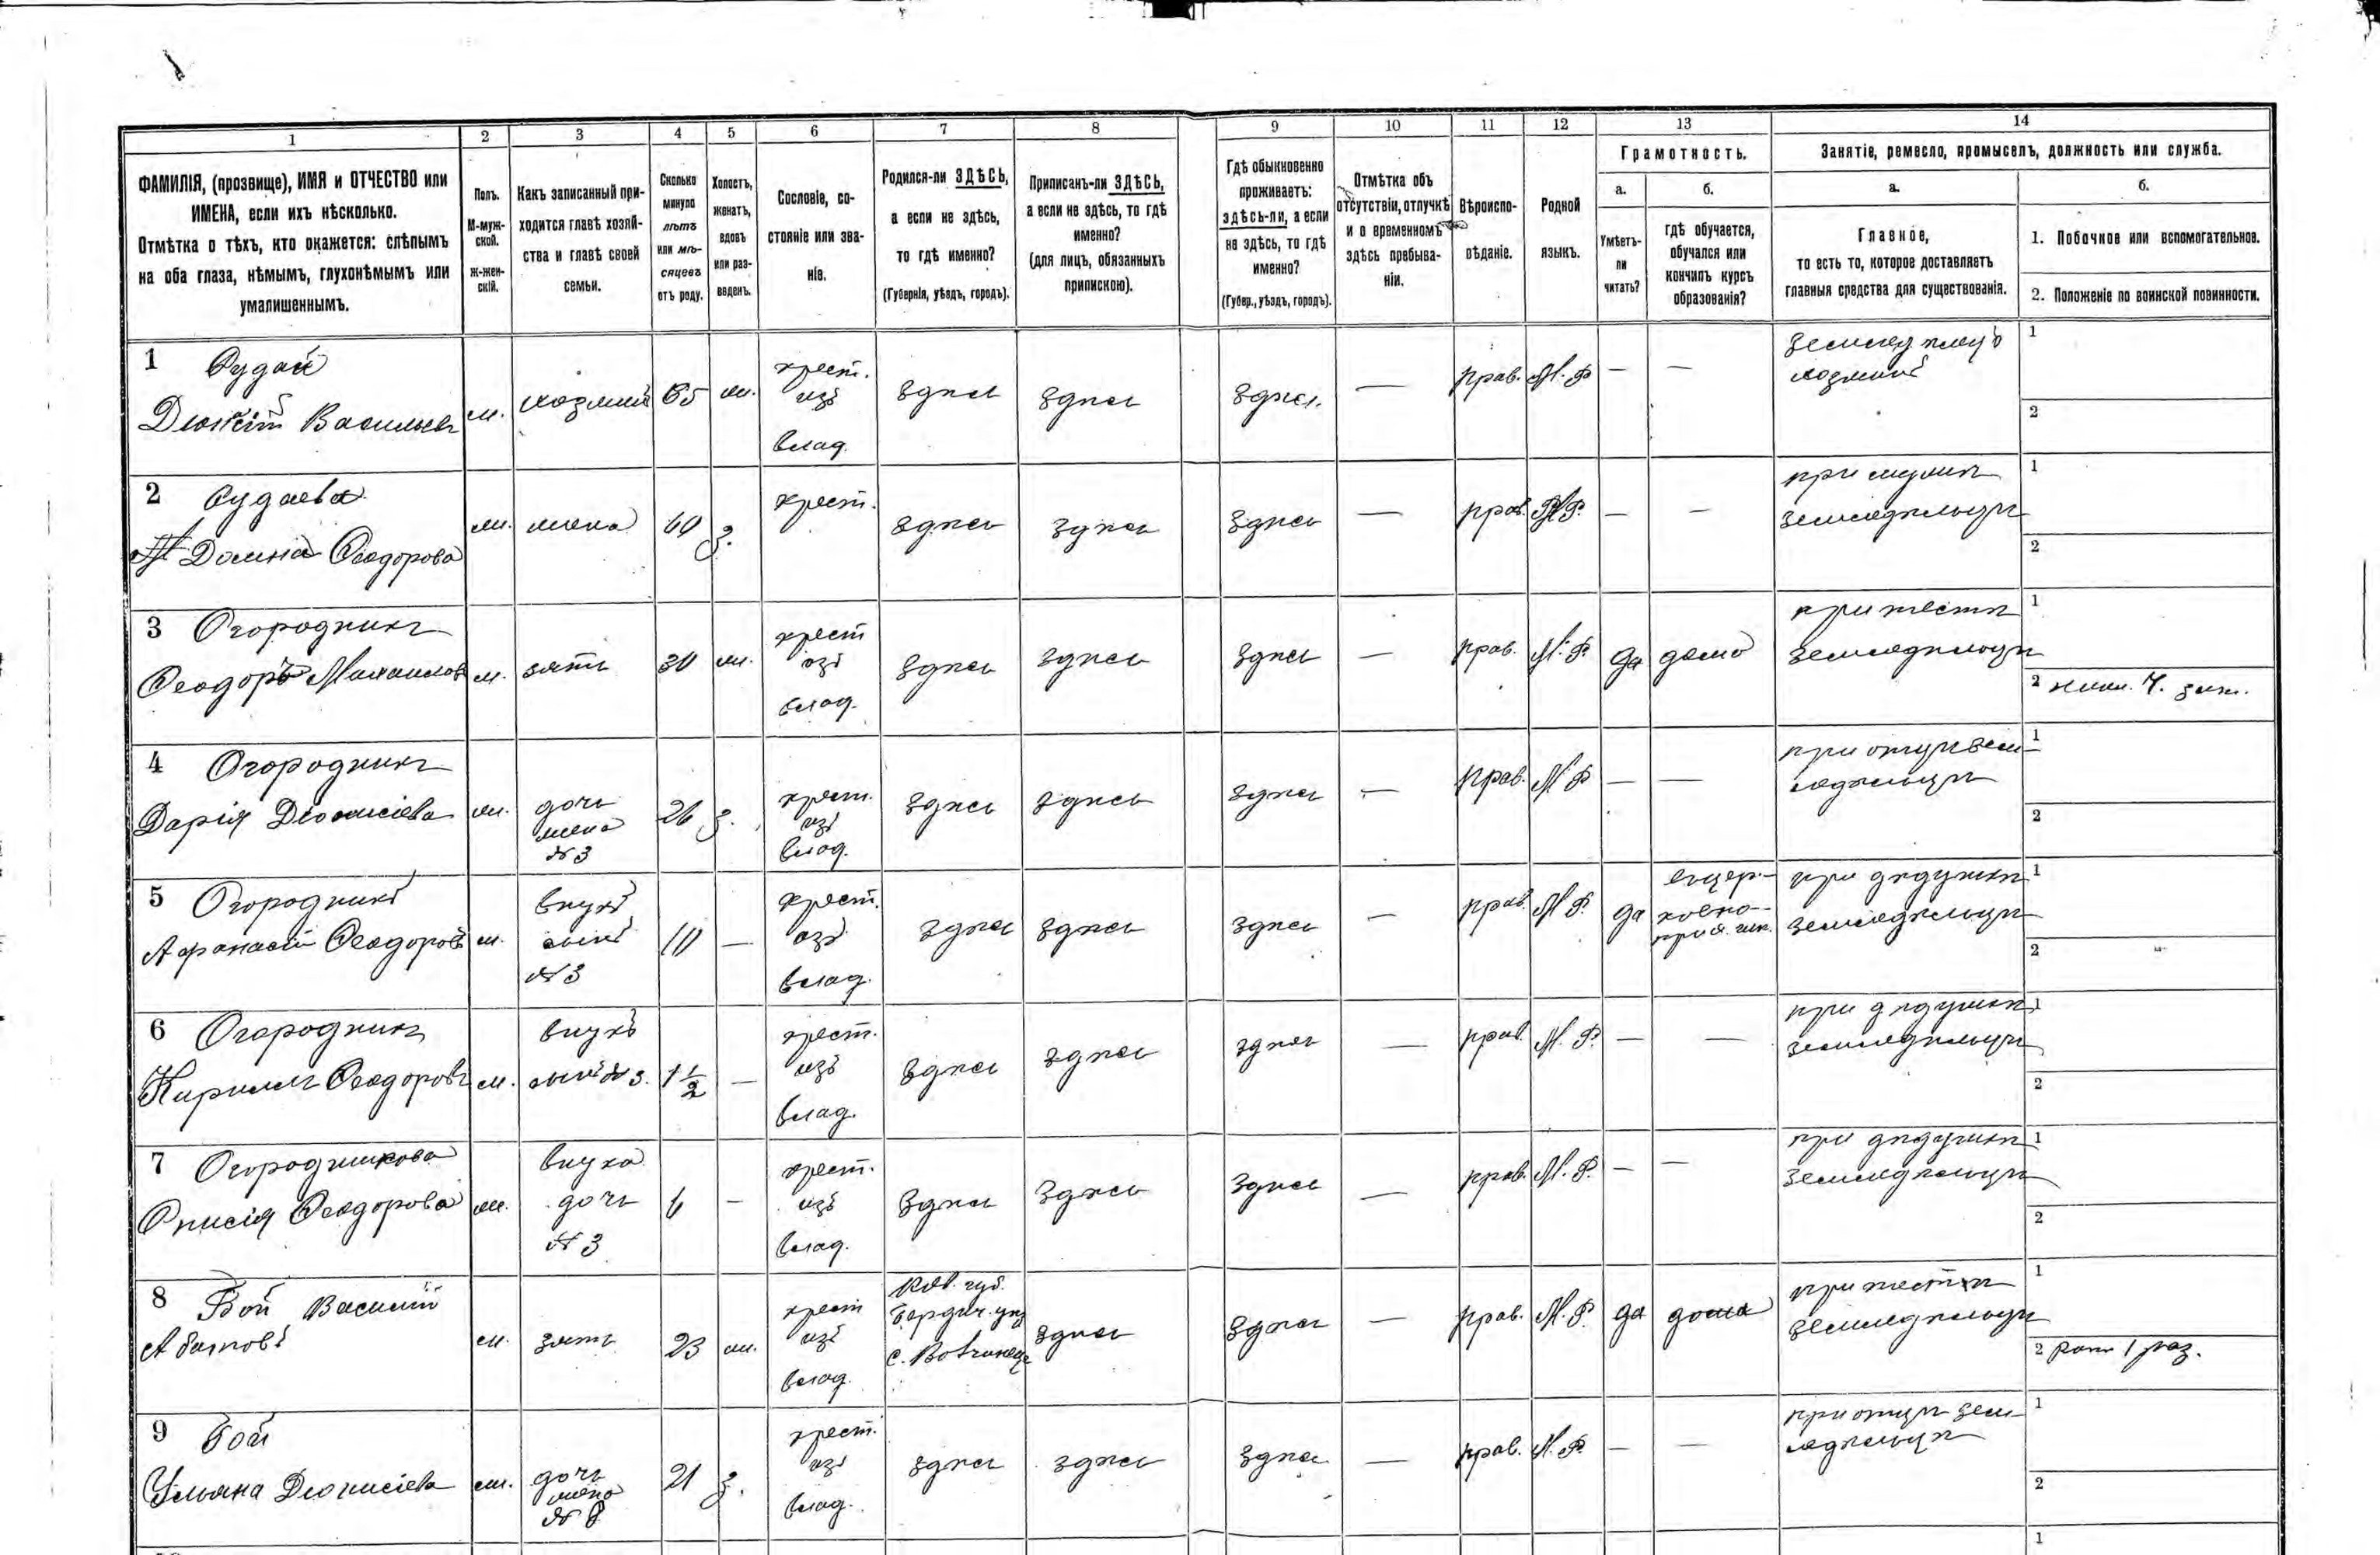 1 2 3 4 5 6 7 8 9 10 11 12 13 14
ФАМИЛІЯ, (прозвище), ИМЯ и ОТЧЕСТВО или
ИМЕНА, если ихъ нѣсколько.
Отмѣтка о тѣхъ, кто окажется: слѣпымъ
на оба глаза, нѣмымъ, глухонѣмымъ или
умалишеннымъ.
Полъ.
М-муж-
ской.
ж-жен-
скій.
Какъ записанный при-
ходится главѣ хозяй-
ства и главѣ своей
семьи.
Сколько
минуло
лѣтъ
или мѣ-
сяцевъ
отъ роду.
Холостъ,
женатъ,
вдовъ
или раз-
веденъ.
Сословіе, со-
стояніе или зва-
ніе.
Родился-ли ЗДѢСЬ,
а если не здѣсь,
то гдѣ именно?
(Губернія, уѣздъ, городъ).
Приписанъ-ли ЗДѢСЬ,
а если не здѣсь, то гдѣ
именно?
(для лицъ, обязанныхъ
припискою).
Гдѣ обыкновенно
проживаетъ:
здѣсь-ли, а если
не здѣсь, то гдѣ
именно?
(Губер., уѣздъ, городъ).
Отмѣтка объ
отсутствіи, отлучкѣ
и о временномъ
здѣсь пребыва-
ніи.
Вѣроиспо-
вѣданіе.
Родной
языкъ.
Грамотность.
а.
Умѣетъ-
ли
читать?
б.
гдѣ обучается,
обучался или
кончилъ курсъ
образованія?
Занятіе, ремесло, промыселъ, должность или служба.
а.
Главное,
то есть то, которое доставляетъ
главныя средства для существованія.
б.
1. Побочное или вспомогательное.
2. Положеніе по воинской повинности.
1 Дудай
Васильевъ
м. хозяинъ 65 ж.
крест.
изъ
влад.
здѣсь здѣсь здѣсь — прав. М. Р. — —
земледѣлецъ
хозяинъ
1
2
2 Дудаева
Домна Ѳеодорова
ж. жена 60 з.
крест.
здѣсь здѣсь здѣсь — прав. М. Р. — —
при мужѣ
земледѣльцѣ
1
2
3 Огородникъ
Ѳеодоръ Михаиловъ
м. зять 30 ж.
крест
изъ
влад.
здѣсь здѣсь здѣсь — прав. М. Р. да дома
при тестѣ
земледѣльцѣ
1
2
4 Огородникъ
Дарія Діонисіева
ж.
дочь
жена
№ 3
26 з.
крест.
изъ
влад.
здѣсь здѣсь здѣсь — прав. М. Р. — —
при отцѣ зем-
ледѣльцѣ
1
2
5 Огородникъ
Афанасій Ѳеодоровъ
м.
внукъ
сынъ
№ 3
10 —
крест.
изъ
влад.
здѣсь здѣсь здѣсь — прав. М. Р. да
въ цер-
ковно-
прих. шк.
при дѣдушкѣ
земледѣльцѣ
1
2
6 Огородникъ
Кириллъ Ѳеодоровъ
м.
внукъ
сынъ № 3.
1 1/2 —
крест.
изъ
влад.
здѣсь здѣсь здѣсь — прав. М. Р. — —
при дѣдушкѣ
земледѣльцѣ
1
2
7 Огородникова
Ѳеодорова
ж.
внука
дочь
№ 3
6 —
крест.
изъ
влад.
здѣсь здѣсь здѣсь — прав. М. Р. — —
при дѣдушкѣ
земледѣльцѣ
1
2
8 Бой Василій
м. зять 23 ж.
крест
изъ
влад.
Кіев. губ.
Бердич. уѣз
с.
здѣсь здѣсь — прав. М. Р. да дома
при тестѣ
земледѣльцѣ
1
2 Ратн 1 раз.
9 Бой
Ульяна Діонисіева
ж.
дочь
жена
№ 8
21 з.
крест.
изъ
влад.
здѣсь здѣсь здѣсь — прав. М. Р. — —
при отцѣ зем-
ледѣльцѣ
1
2
1